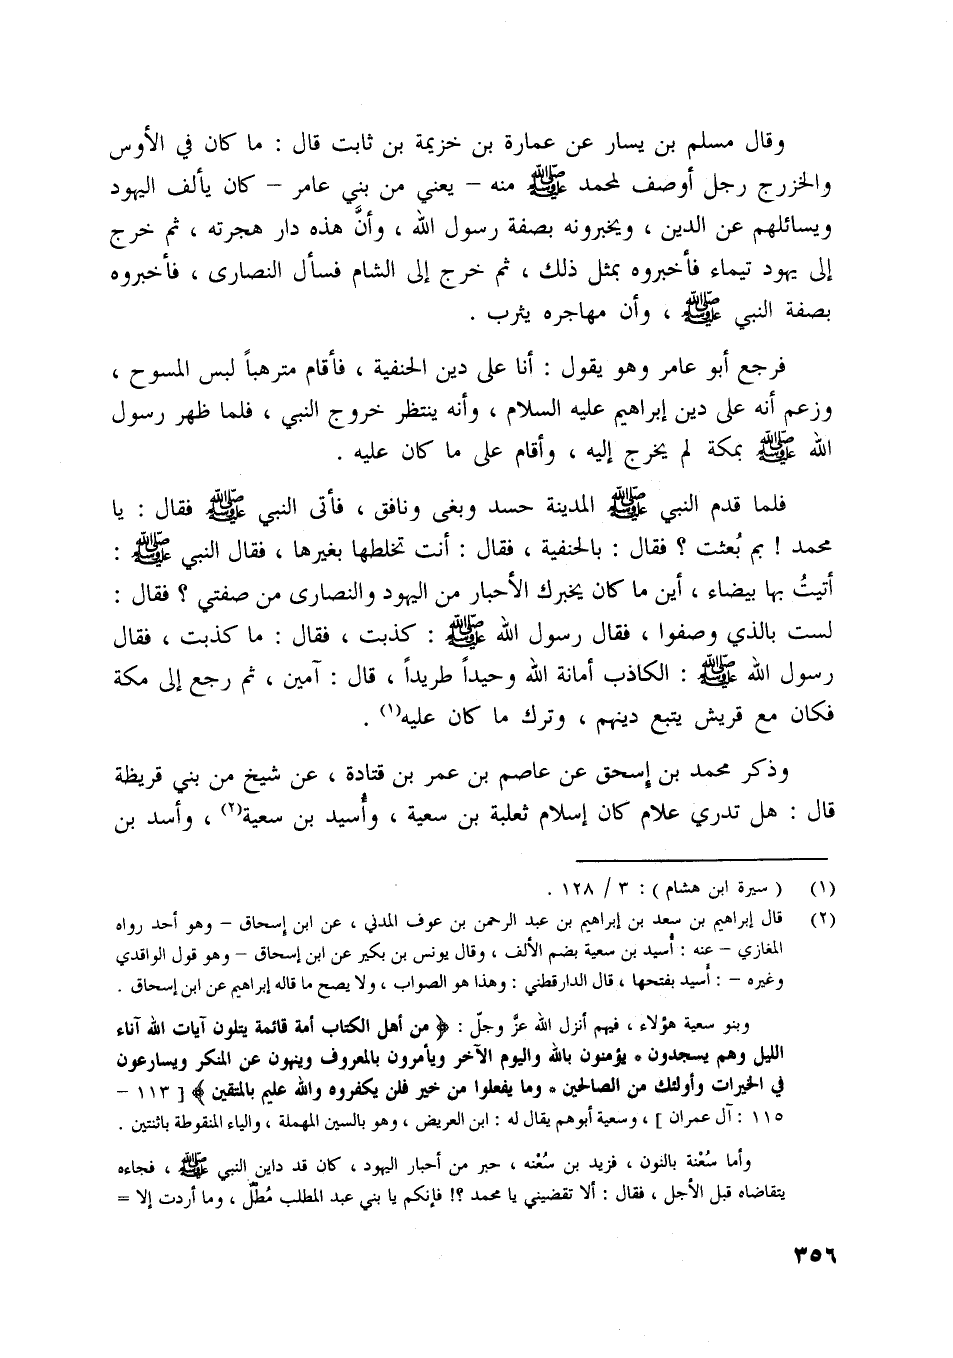 وقال مسلم بن يسار عن عمارة بن خزيمة بن ثابت قال : ما كان في الأوس
والخزرج رجل أوصف لمحمد ﷺ منه – يعني من بني عامر – كان يألف اليهود
ويسائلهم عن الدين ، ويخبرونه بصفة رسول الله ، وأنَّ هذه دار هجرته ، ثم خرج
إلى يهود تيماء فأخبروه بمثل ذلك ، ثم خرج إلى الشام فسأل النصارى ، فأخبروه
بصفة النبي ﷺ ، وأن مهاجره يثرب .
فرجع أبو عامر وهو يقول : أنا على دين الحنفية ، فأقام مترهباً لبس المسوح ،
وزعم أنه على دين إبراهيم عليه السلام ، وأنه ينتظر خروج النبي ، فلما ظهر رسول
الله ﷺ بمكة لم يخرج إليه ، وأقام على ما كان عليه .
فلما قدم النبي ﷺ المدينة حسد وبغى ونافق ، فأتى النبي ﷺ فقال : يا
محمد ! بم بُعثت ؟ فقال : بالحنفية ، فقال : أنت تخلطها بغيرها ، فقال النبي ﷺ :
أتيتُ بها بيضاء ، أين ما كان يخبرك الأحبار من اليهود والنصارى من صفتي ؟ فقال :
لست بالذي وصفوا ، فقال رسول الله ﷺ : كذبت ، فقال : ما كذبت ، فقال
رسول الله ﷺ : الكاذب أماتة الله وحيداً طريداً ، قال : آمين ، ثم رجع إلى مكة
فكان مع قريش يتبع دينهم ، وترك ما كان عليه(١) .
وذكر محمد بن إسحق عن عاصم بن عمر بن قتادة ، عن شيخ من بني قريظة
قال : هل تدري علام كان إسلام ثعلبة بن سعية ، وأُسيد بن سعية(٢) ، وأسد بن
(١) ( سيرة ابن هشام ) : ٣ / ١٢٨ .
(٢) قال إبراهيم بن سعد بن إبراهيم بن عبد الرحمن بن عوف المدني ، عن ابن إسحاق – وهو أحد رواه
المغازي – عنه : أُسيد بن سعية بضم الألف ، وقال يونس بن بكير عن ابن إسحاق – وهو قول الواقدي
وغيره – : أَسيد بفتحها ، قال الدارقطني : وهذا هو الصواب ، ولا يصح ما قاله إبراهيم عن ابن إسحاق .
وبنو سعية هؤلاء ، فيهم أنزل الله عزَّ وجلّ : ﴿ من أهل الكتاب أمة قائمة يتلون آيات الله آناء
الليل وهم يسجدون * يؤمنون بالله واليوم الآخر ويأمرون بالمعروف وينهون عن المنكر ويسارعون
في الخيرات وأولئك من الصالحين * وما يفعلوا من خير فلن يكفروه والله عليم بالمتقين ﴾ [ ١١٣ –
١١٥ : آل عمران ] ، وسعية أبوهم يقال له : ابن العريض ، وهو بالسين المهملة ، والياء المنقوطة باثنتين .
وأما سُعْنة بالنون ، فزيد بن سُعْنه ، حبر من أحبار اليهود ، كان قد داين النبي ﷺ ، فجاءه
يتقاضاه قبل الأجل ، فقال : ألا تقضيني يا محمد ؟! فإنكم يا بني عبد المطلب مُطلّ ، وما أردت إلا =
٣٥٦